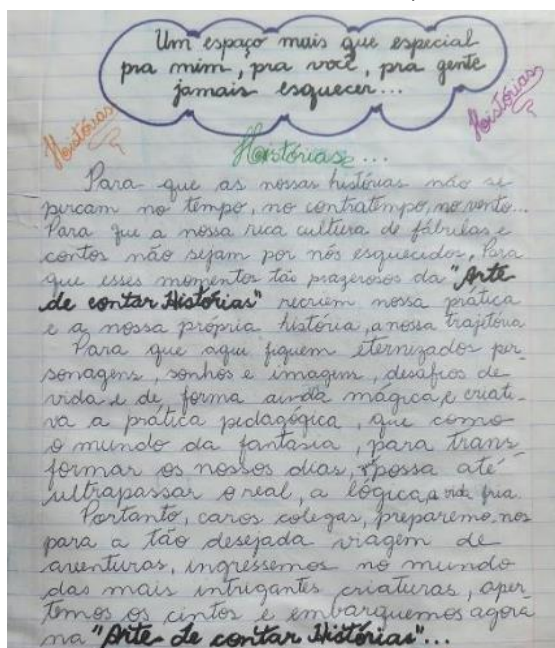 Um espaço mais que especial
pra mim, pra você, pra gente
jamais esquecer...
Histórias
Histórias
Histórias...
Para que as nossas histórias não se
percam no tempo, no contratempo, no vento...
Para que a nossa rica cultura de fábulas e
contos não sejam por nós esquecidos, Para
que esses momentos tão prazerosos da "Arte
de contar Histórias" recriem nossa prática
e a nossa própria história, a nossa trajetória
Para que aqui fiquem eternizados per
sonagens, sonhos e imagens, desafios de
vida e de forma ainda mágica e criati-
va a prática pedagógica, que como
o mundo da fantasia, para trans
formar os nossos dias, possa até
ultrapassar o real, a lógica, a vida fria.
Portanto, caros colegas, preparemo-nos
para a tão desejada viagem de
aventuras, ingressemos no mundo
das mais intrigantes criaturas, aper-
temos os cintos e embarquemos agora
na "Arte de contar Histórias"...